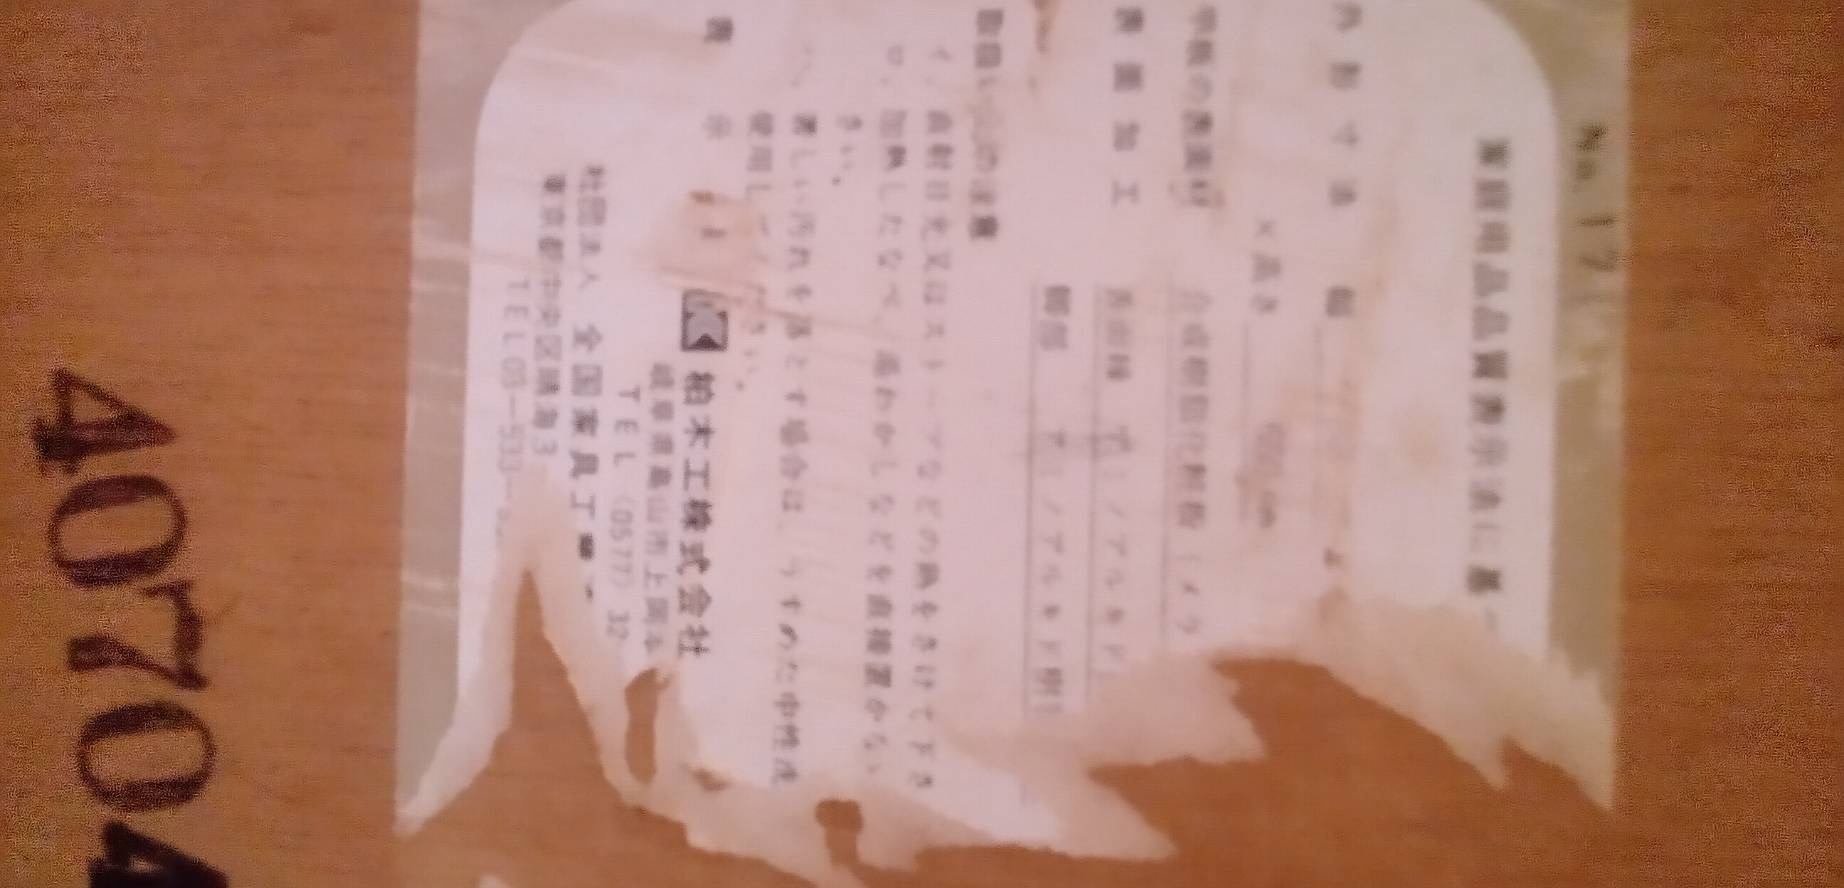 No. 17
家庭用品品質表示法に基
外形寸法 幅
×高さ
甲板の表面材 合成樹脂化粧板（メラ
表面加工 表面材 アミノアルキド
脚部 アミノアルキド樹
取扱い上の注意
イ、直射日光又はストーブなどの熱をさけて下さ
ロ、加熱したなべ、湯わかしなどを直接置かない
さい。
ハ、著しい汚れを落とす場合は、うすめた中性洗
使用し さい。
表示
柏木工株式会社
岐阜県高山市上岡本
TEL (0577) 32
社団法人 全国家具工
東京都中央区晴海3
TEL03-533-
40704